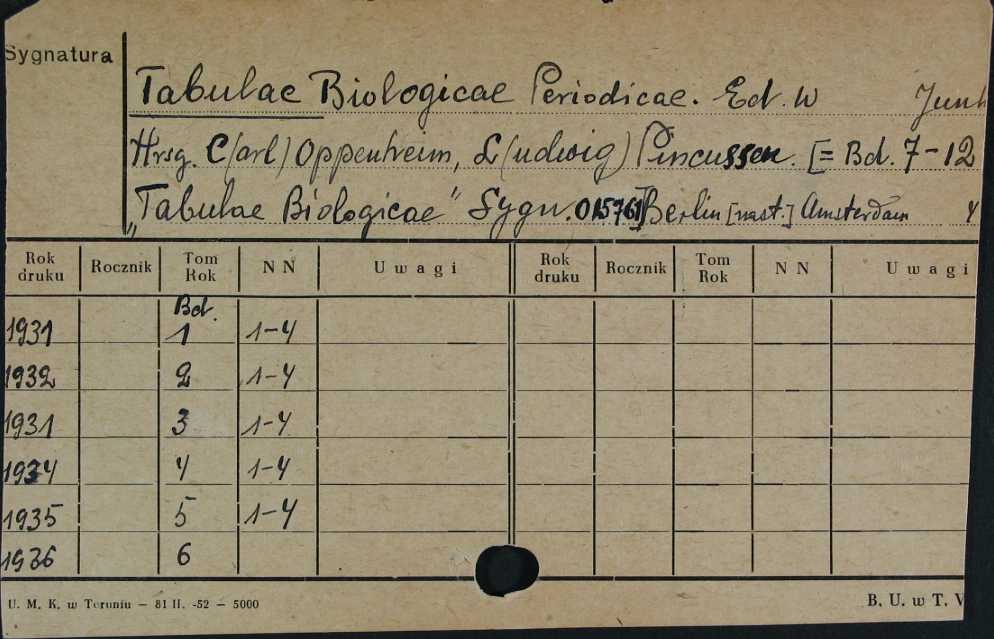 Sygnatura
Tabulae Biologicae Periodicae. Ed. W Junk
Hrsg. C(arl) Oppenheim, L(udwig) Pincussen. [= Bd. 7-12
"Tabulae Biologicae" Sygn. 015761] Berlin [nast.] Amsterdam
Rok druku Rocznik Tom Rok NN Uwagi Rok druku Rocznik Tom Rok NN Uwagi
Bd.
1931 1 1-4
1932 2 1-4
1931 3 1-4
1934 4 1-4
1935 5 1-4
1936 6
U. M. K. w Toruniu — 81 II. -52 — 5000 B. U. w T.